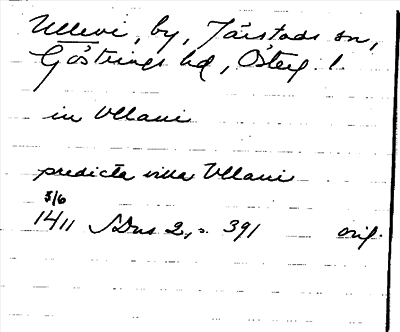 Ullevi, by, Järstads sn,
Göstrings hd, Österg. l.
in Vllaui
predicta villa Vllaui
3/6
1411 SDns 2, s. 391 orig.